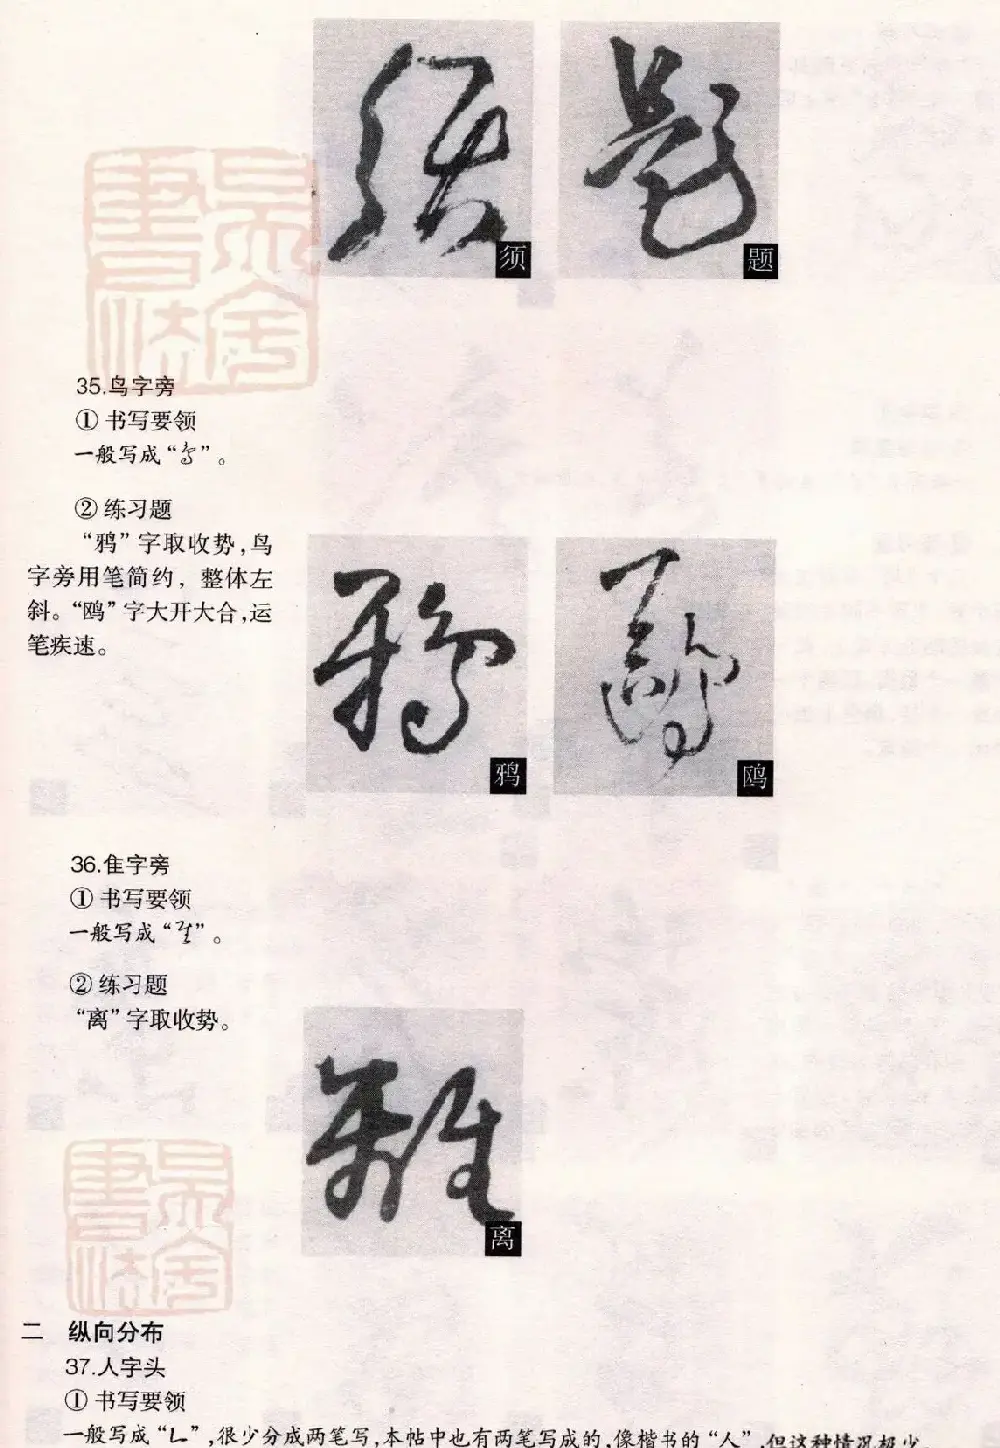 须
题
35.鸟字旁
① 书写要领
一般写成“”。
② 练习题
“鸦”字取收势,鸟
字旁用笔简约，整体左
斜。“鸥”字大开大合,运
笔疾速。
鸦
鸥
36.隹字旁
① 书写要领
一般写成“”。
② 练习题
“离”字取收势。
离
二 纵向分布
37.人字头
① 书写要领
一般写成“”,很少分成两笔写,本帖中也有两笔写成的,像楷书的“人”,但这种情况极少